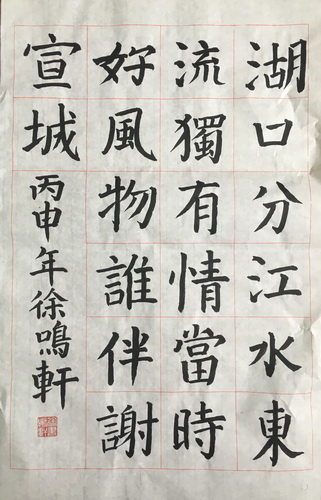 湖口分江水東
流獨有情當時
好風物誰伴謝
宣城
丙申年徐鳴軒